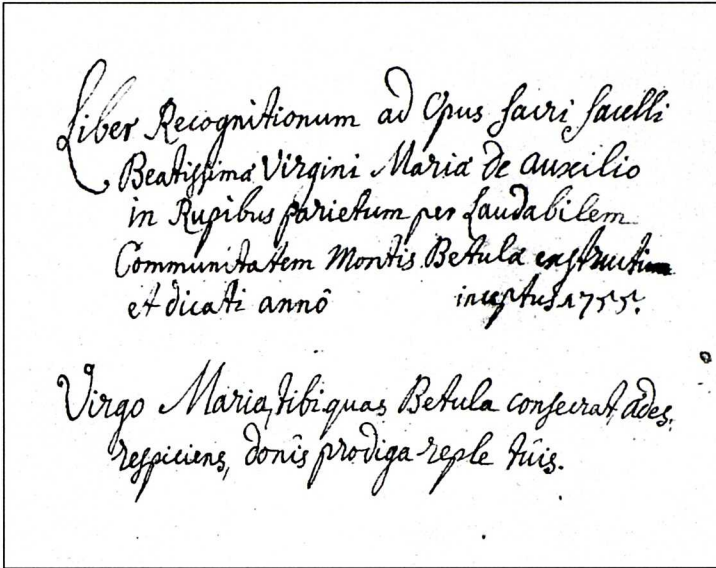 Liber Recognitionum ad Opus sacri sacelli
Beatissimæ Virgini Mariæ de Auxilio
in Rupibus parietum per Laudabilem
Communitatem Montis Betulæ exstructum
et dicati annô inceptus 1755.
Virgo Maria, tibi quas Betula consecrat, ædes.
respiciens, donîs prodiga reple tûis.